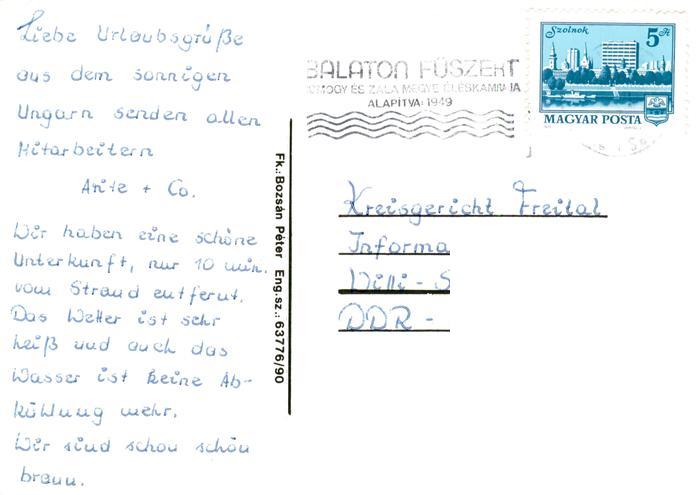 Liebe Urlaubsgrüße
aus dem sonnigen
Ungarn senden allen
Mitarbeitern
+ Co.
Wir haben eine schöne
Unterkunft, nur 10 min.
vom Strand entfernt.
Das Wetter ist sehr
heiß und auch das
Wasser ist keine Ab-
kühlung mehr.
Wir sind schon schön
braun.
Fk.: Bozsán Péter Eng.sz.: 63776/90
BALATON FŰSZERT
SOMOGY ÉS ZALA MEGYE ÉLÉSKAMRÁJA
ALAPÍTVA: 1949
Szolnok
5 Ft
MAGYAR POSTA
Kreisgericht Freital
Informa
Willi - S
DDR -